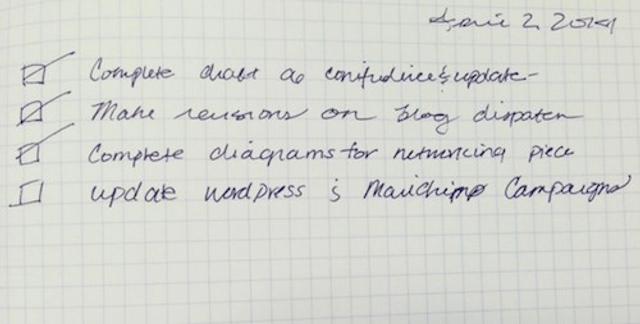 April 2, 2014
Complete draft as & update-
Make revisions on blog dispatch
Complete diagrams for networking piece
update wordpress & Mailchimp Campaigns